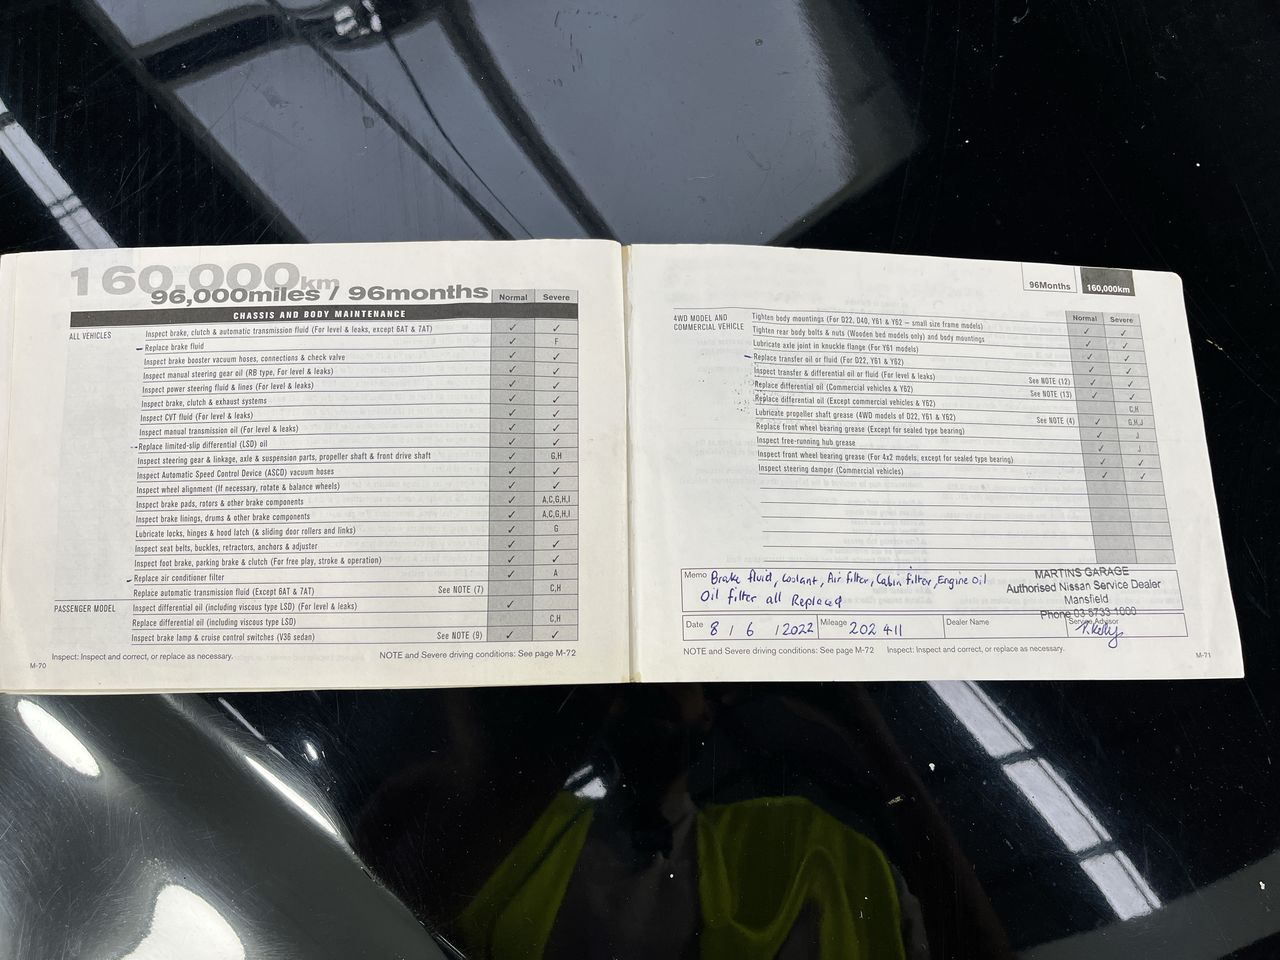 160,000km
96,000miles / 96months
Normal Severe
CHASSIS AND BODY MAINTENANCE
ALL VEHICLES
Inspect brake, clutch & automatic transmission fluid (For level & leaks, except 6AT & 7AT) ✓ ✓
Replace brake fluid ✓ F
Inspect brake booster vacuum hoses, connections & check valve ✓ ✓
Inspect manual steering gear oil (RB type, For level & leaks) ✓ ✓
Inspect power steering fluid & lines (For level & leaks) ✓ ✓
Inspect brake, clutch & exhaust systems ✓ ✓
Inspect CVT fluid (For level & leaks) ✓ ✓
Inspect manual transmission oil (For level & leaks) ✓ ✓
Replace limited-slip differential (LSD) oil ✓ ✓
Inspect steering gear & linkage, axle & suspension parts, propeller shaft & front drive shaft ✓ G,H
Inspect Automatic Speed Control Device (ASCD) vacuum hoses ✓ ✓
Inspect wheel alignment (If necessary, rotate & balance wheels) ✓ ✓
Inspect brake pads, rotors & other brake components ✓ A,C,G,H,I
Inspect brake linings, drums & other brake components ✓ A,C,G,H,I
Lubricate locks, hinges & hood latch (& sliding door rollers and links) ✓ G
Inspect seat belts, buckles, retractors, anchors & adjuster ✓ ✓
Inspect foot brake, parking brake & clutch (For free play, stroke & operation) ✓ ✓
Replace air conditioner filter ✓ A
Replace automatic transmission fluid (Except 6AT & 7AT) See NOTE (7) C,H
PASSENGER MODEL
Inspect differential oil (including viscous type LSD) (For level & leaks) ✓
Replace differential oil (including viscous type LSD) C,H
Inspect brake lamp & cruise control switches (V36 sedan) See NOTE (9) ✓ ✓
Inspect: Inspect and correct, or replace as necessary. NOTE and Severe driving conditions: See page M-72
M-70
96Months 160,000km
Normal Severe
4WD MODEL AND
COMMERCIAL VEHICLE
Tighten body mountings (For D22, D40, Y61 & Y62 – small size frame models) ✓ ✓
Tighten rear body bolts & nuts (Wooden bed models only) and body mountings ✓ ✓
Lubricate axle joint in knuckle flange (For Y61 models) ✓ ✓
Replace transfer oil or fluid (For D22, Y61 & Y62) ✓ ✓
Inspect transfer & differential oil or fluid (For level & leaks) See NOTE (12) ✓ ✓
Replace differential oil (Commercial vehicles & Y62) See NOTE (13) ✓ ✓
Replace differential oil (Except commercial vehicles & Y62) C,H
Lubricate propeller shaft grease (4WD models of D22, Y61 & Y62) See NOTE (4) ✓ G,H,J
Replace front wheel bearing grease (Except for sealed type bearing) ✓ J
Inspect free-running hub grease ✓ J
Inspect front wheel bearing grease (For 4x2 models, except for sealed type bearing) ✓ ✓
Inspect steering damper (Commercial vehicles) ✓ ✓
Memo Brake fluid, Coolant, Air filter, Cabin filter, Engine Oil
Oil filter all Replaced
MARTINS GARAGE
Authorised Nissan Service Dealer
Mansfield
Phone 03 5733 1000
Date 8 / 6 / 2022 Mileage 202 411 Dealer Name Service Advisor
T. Kelly
NOTE and Severe driving conditions: See page M-72 Inspect: Inspect and correct, or replace as necessary.
M-71